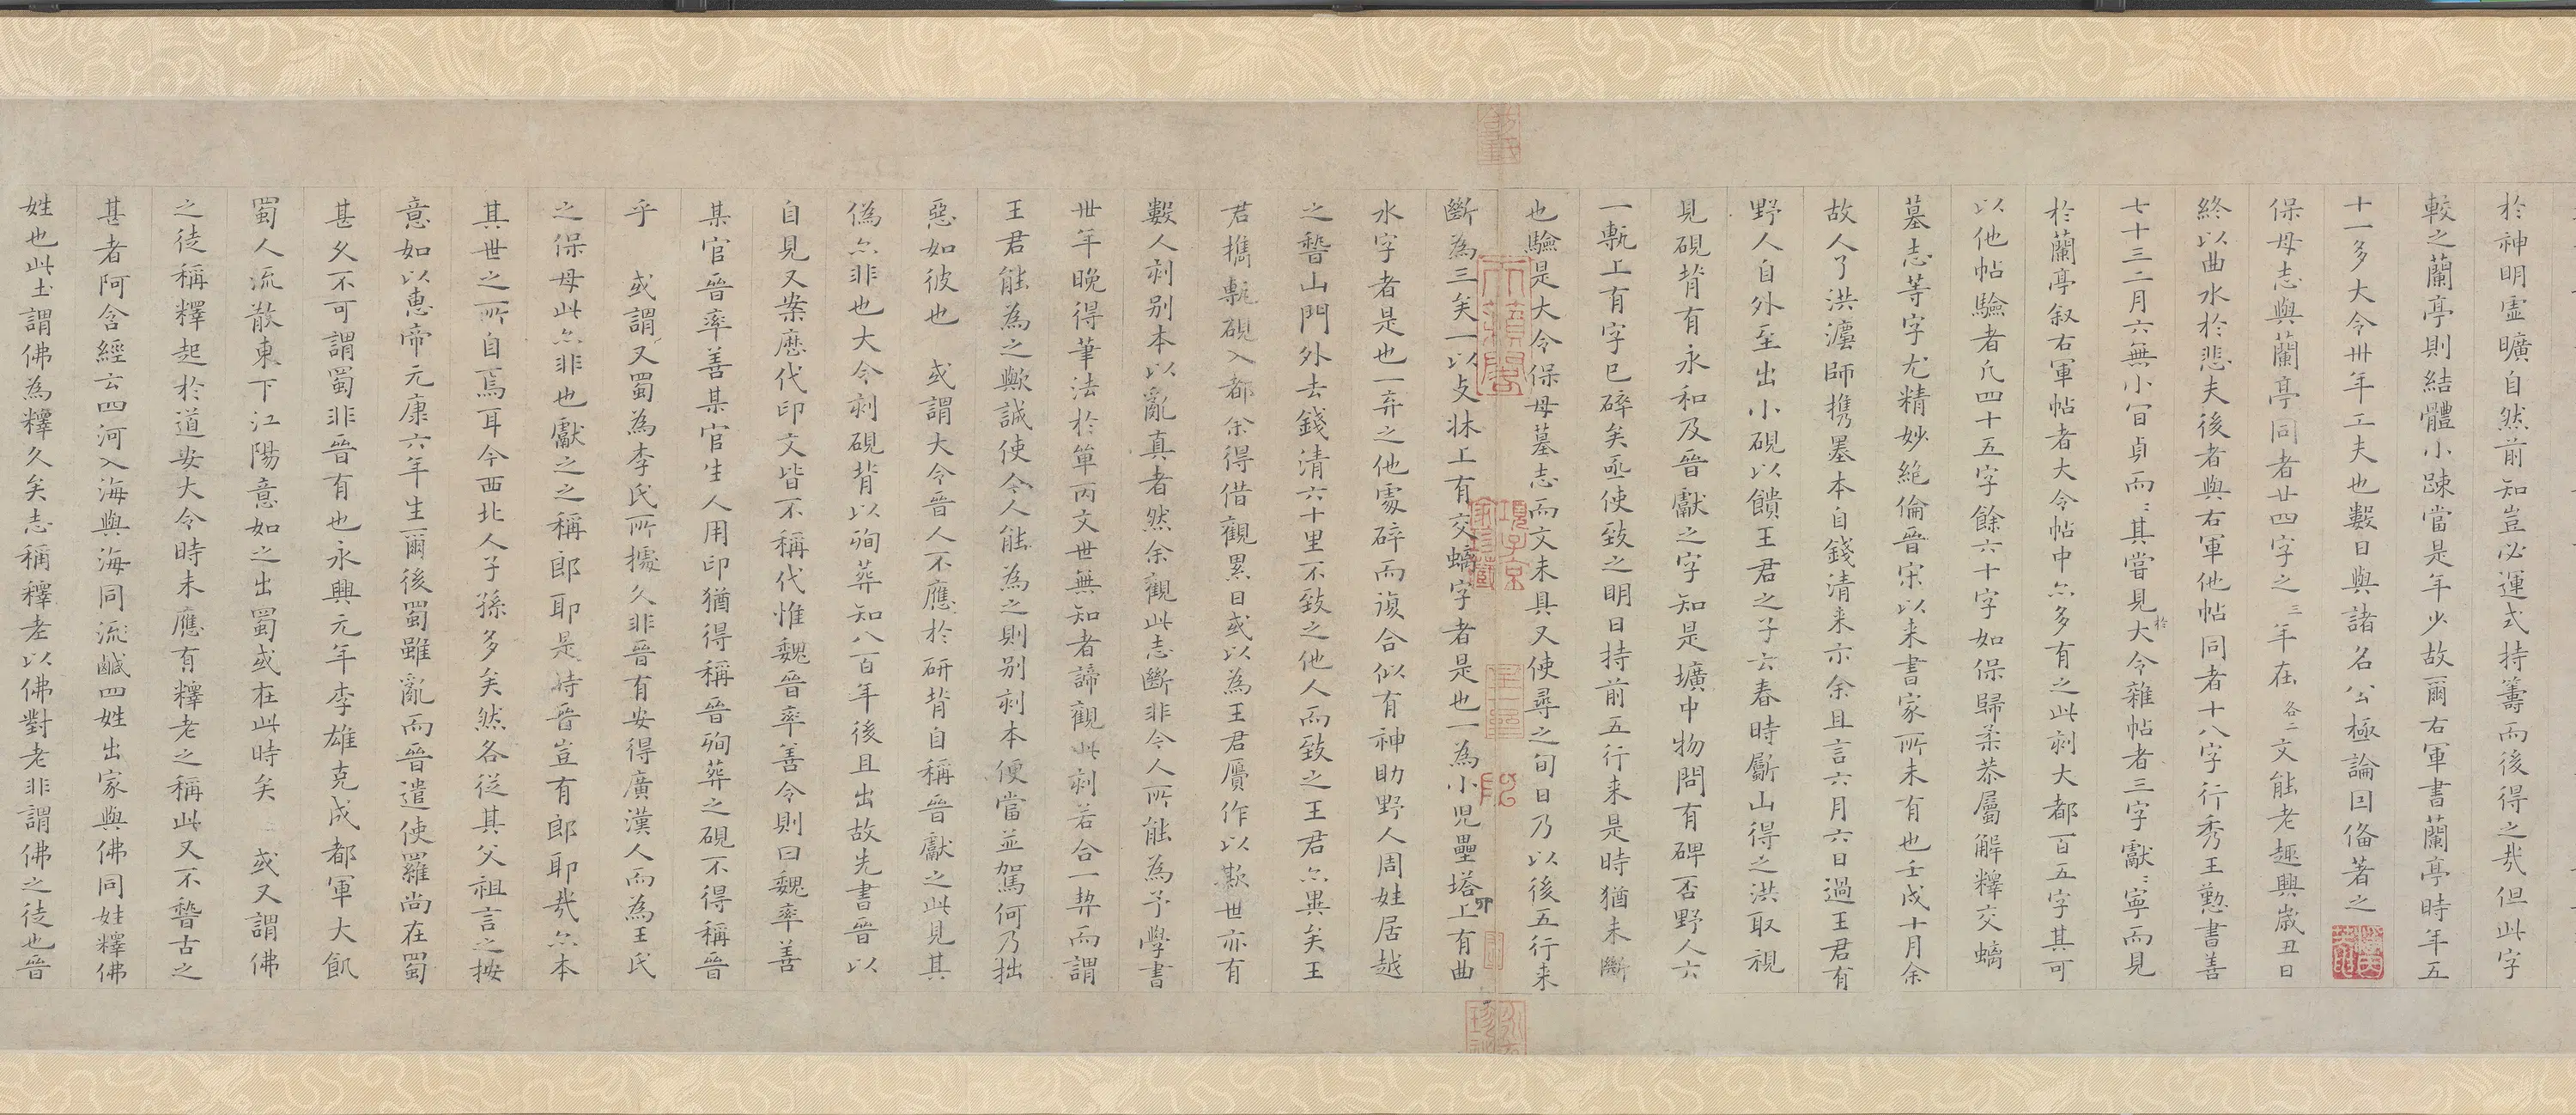 於神明虛曠自然前知豈必運式持籌而後得之哉但此字
較之蘭亭則結體小踈當是年少故爾右軍書蘭亭時年五
十一多大令卅年工夫也數日與諸名公極論因俻著之
保母志與蘭亭同者廿四字之三年在各二文能老趣興歲丑日
終以曲水於悲夫後者與右軍他帖同者十八字行秀王懃書善
七十三二月六無小宜貞而〻其嘗見於大令雜帖者三字獻〻寧而見
於蘭亭叙右軍帖者大令帖中亦多有之此刻大都百五字其可
以他帖驗者凡四十五字餘六十字如保歸柔恭屬解釋交螭
墓志等字尤精妙絶倫晉宋以来書家所未有也壬戌十月余
故人了洪灋師携墨本自錢清来示余且言六月六日過王君有
野人自外至出小硯以饋王君之子云春時斸山得之洪取視
見硯背有永和及晉獻之字知是壙中物問有碑否野人云
一甎上有字已碎矣亟使致之明日持前五行来是時猶未斷
也驗是大令保母墓志而文未具又使尋之旬日乃以後五行来
斷為三矣一以支牀上有交螭字者是也一為小兒壘塔上有曲
水字者是也一弃之他處碎而復合似有神助野人周姓居越
之稽山門外去錢清六十里不致之他人而致之王君亦異矣王
君攜甎硯入都余得借觀累日或以為王君贋作以欺世亦有
數人刻别本以亂真者然余觀此志斷非今人所能為予學書
卅年晚得筆法於單丙文世無知者諦觀此刻若合一契而謂
王君能為之歟誠使今人能為之則别刻本便當並駕何乃拙
惡如彼也　或謂大令晉人不應於研背自稱晉獻之此見其
偽亦非也大令刻硯背以殉葬知八百年後且出故先書晉以
自見又案歷代印文皆不稱代惟魏晉率善令則曰魏率善
某官晉率善某官生人用印猶得稱晉殉葬之硯不得稱晉
乎　或謂又蜀為李氏所擄久非晉有安得廣漢人而為王氏
之保母此亦非也獻之之稱郎耶是時晉豈有郎耶哉亦本
其世之所自焉耳今西北人子孫多矣然各從其父祖言之按
意如以惠帝元康六年生爾後蜀雖亂而晉遣使羅尚在蜀
甚久不可謂蜀非晉有也永興元年李雄克成都軍大飢
蜀人流散東下江陽意如之出蜀或在此時矣　或又謂佛
之徒稱釋起於道安大令時未應有釋老之稱此又不稽古之
甚者阿含經云四河入海與海同流鹹四姓出家與佛同姓釋佛
姓也此土謂佛為釋久矣志稱釋老以佛對老非謂佛之徒也晉